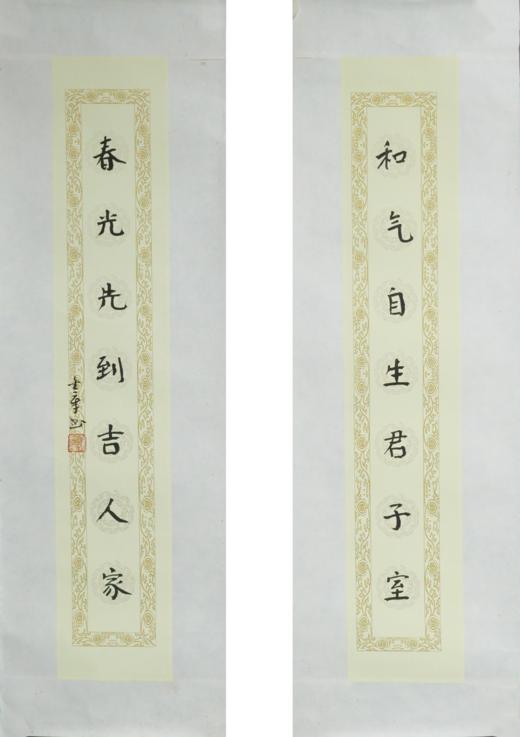 和气自生君子室
春光先到吉人家